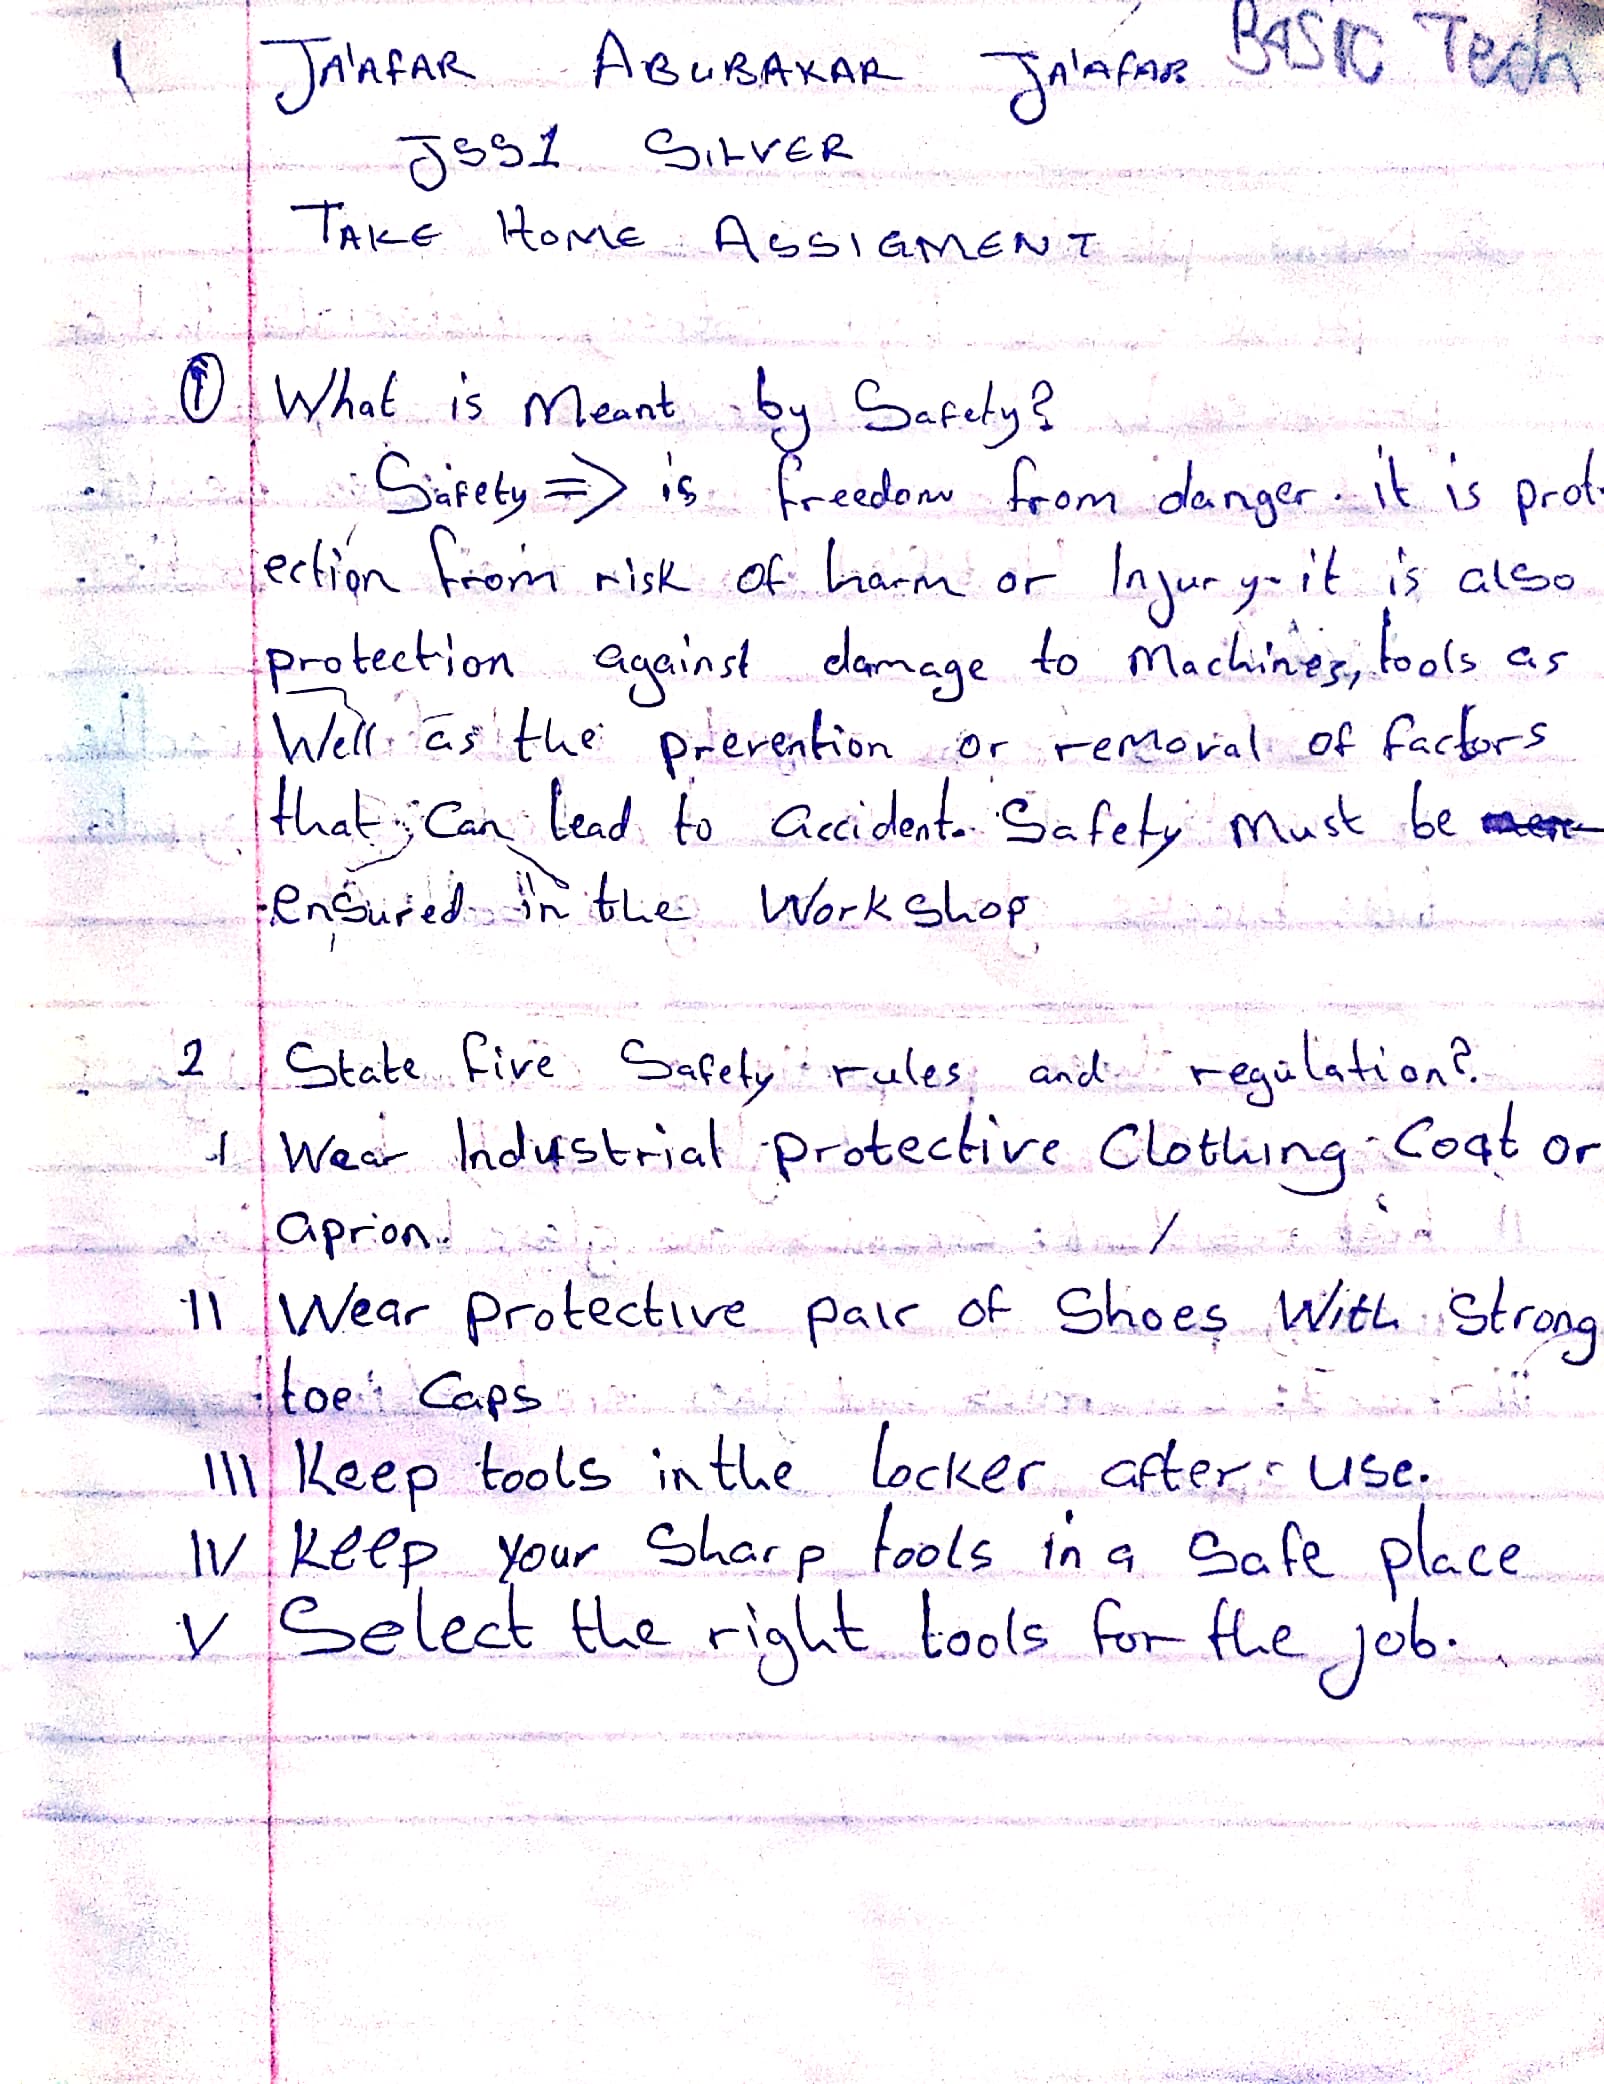 1 JA'AFAR ABUBAKAR JA'AFAR BASIC Tech
JSS1 SILVER
TAKE HOME ASSIGMENT
1 What is Meant by Safety?
Safety => is freedom from danger. it is prot-
ection from risk of harm or Injury. it is also
protection against damage to Machines, tools as
Well as the prevention or removal of factors
that can lead to accident. Safety Must be
ensured in the Workshop
2 State five Safety rules and regulation?
I Wear Industrial protective Clothing Coat or
aprion.
II Wear protective pair of Shoes With Strong
toe Caps
III Keep tools in the locker after use.
IV Keep your Sharp tools in a Safe place
V Select the right tools for the job.